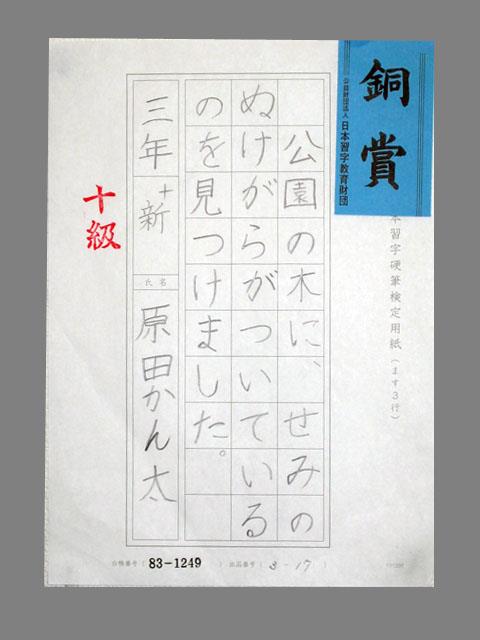 銅賞
公益財団法人 日本習字教育財団
本習字硬筆検定用紙(ます3行)
公園の木に、せみの
ぬけがらがついている
のを見つけました。
三年 +新
氏名
原田かん太
十級
台帳番号( 83-1249 ) 出品番号( 3-17 )